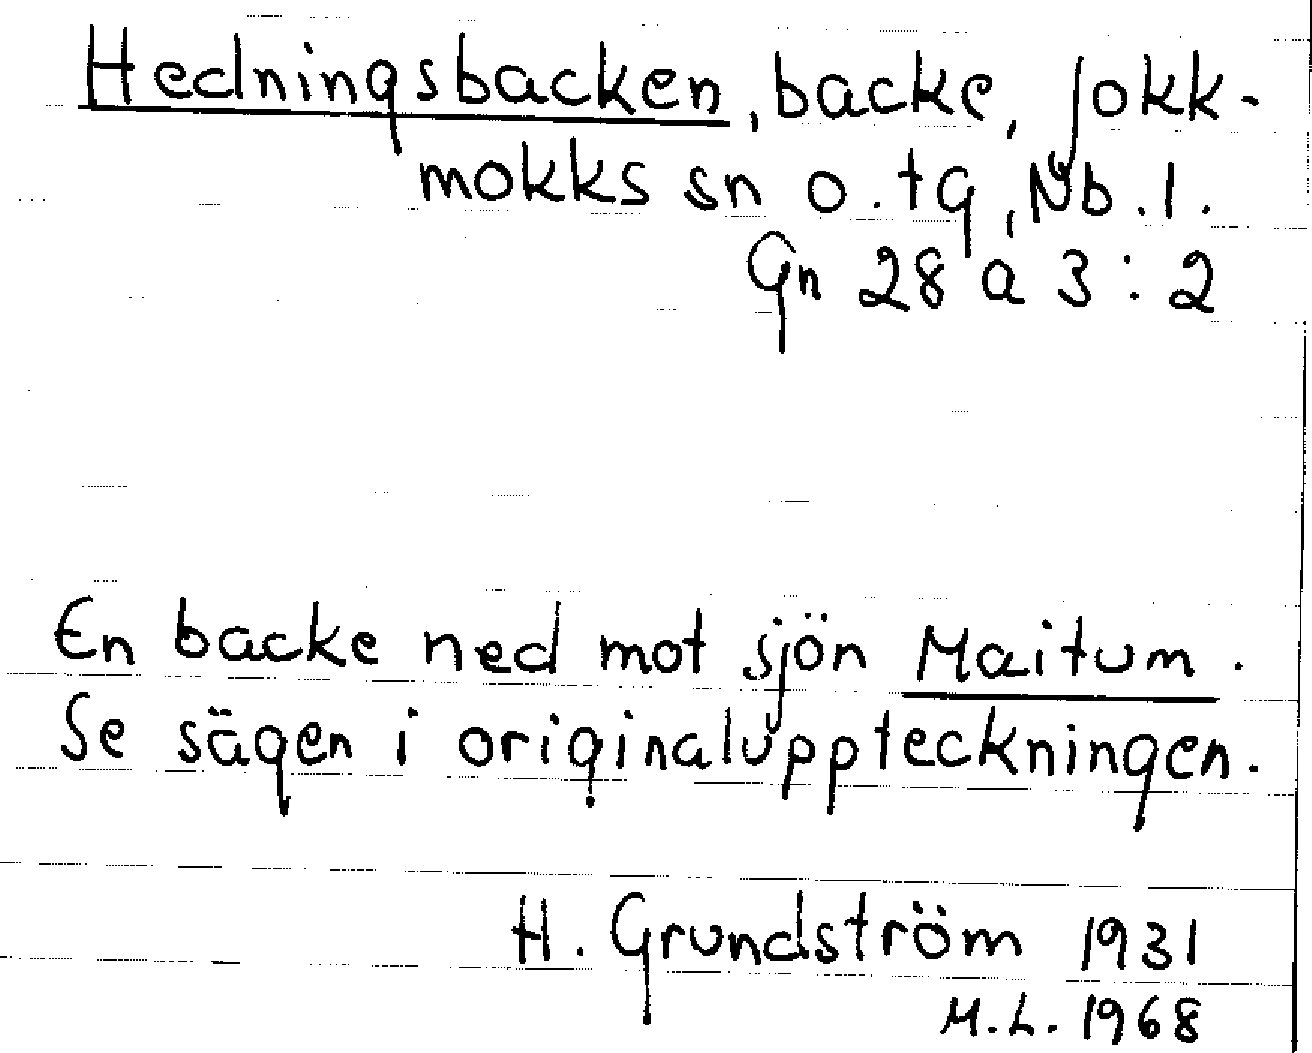 Hedningsbacken, backe, Jokk-
mokks sn o. tg, Nb. l.
Gn 28 a 3 : 2
En backe ned mot sjön Maitum.
Se sägen i originaluppteckningen.
H. Grundström 1931
M.L. 1968